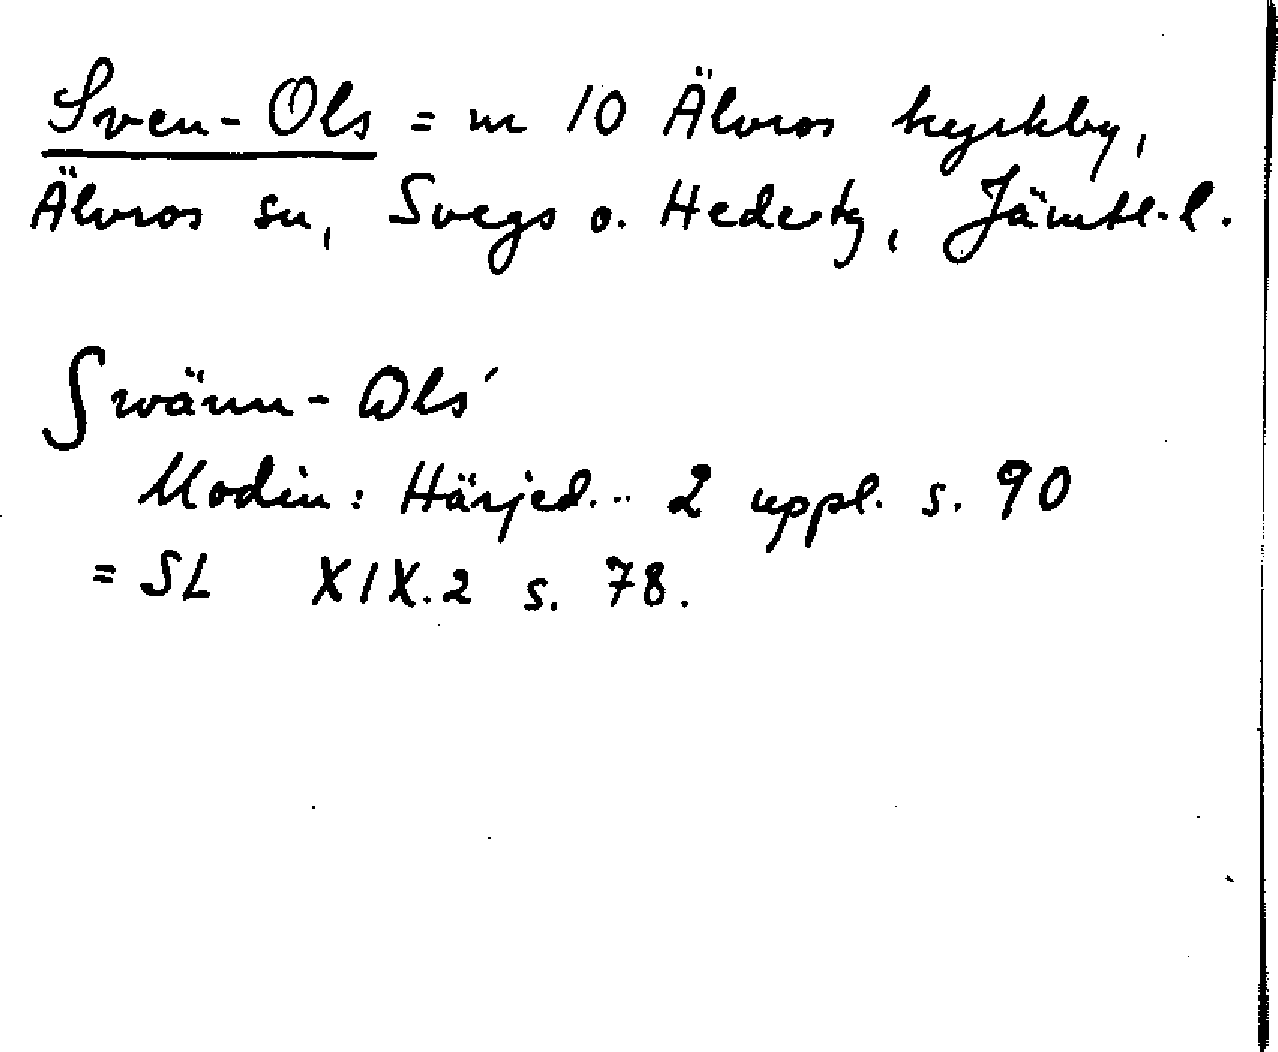 Sven-Ols = nr 10 Älvros kyrkby,
Älvros sn, Svegs o. Hede tg, Jämtl. l.
Swänn-Ols´
Modin: Härjed... 2 uppl. s. 90
= SL XIX.2 s. 78.